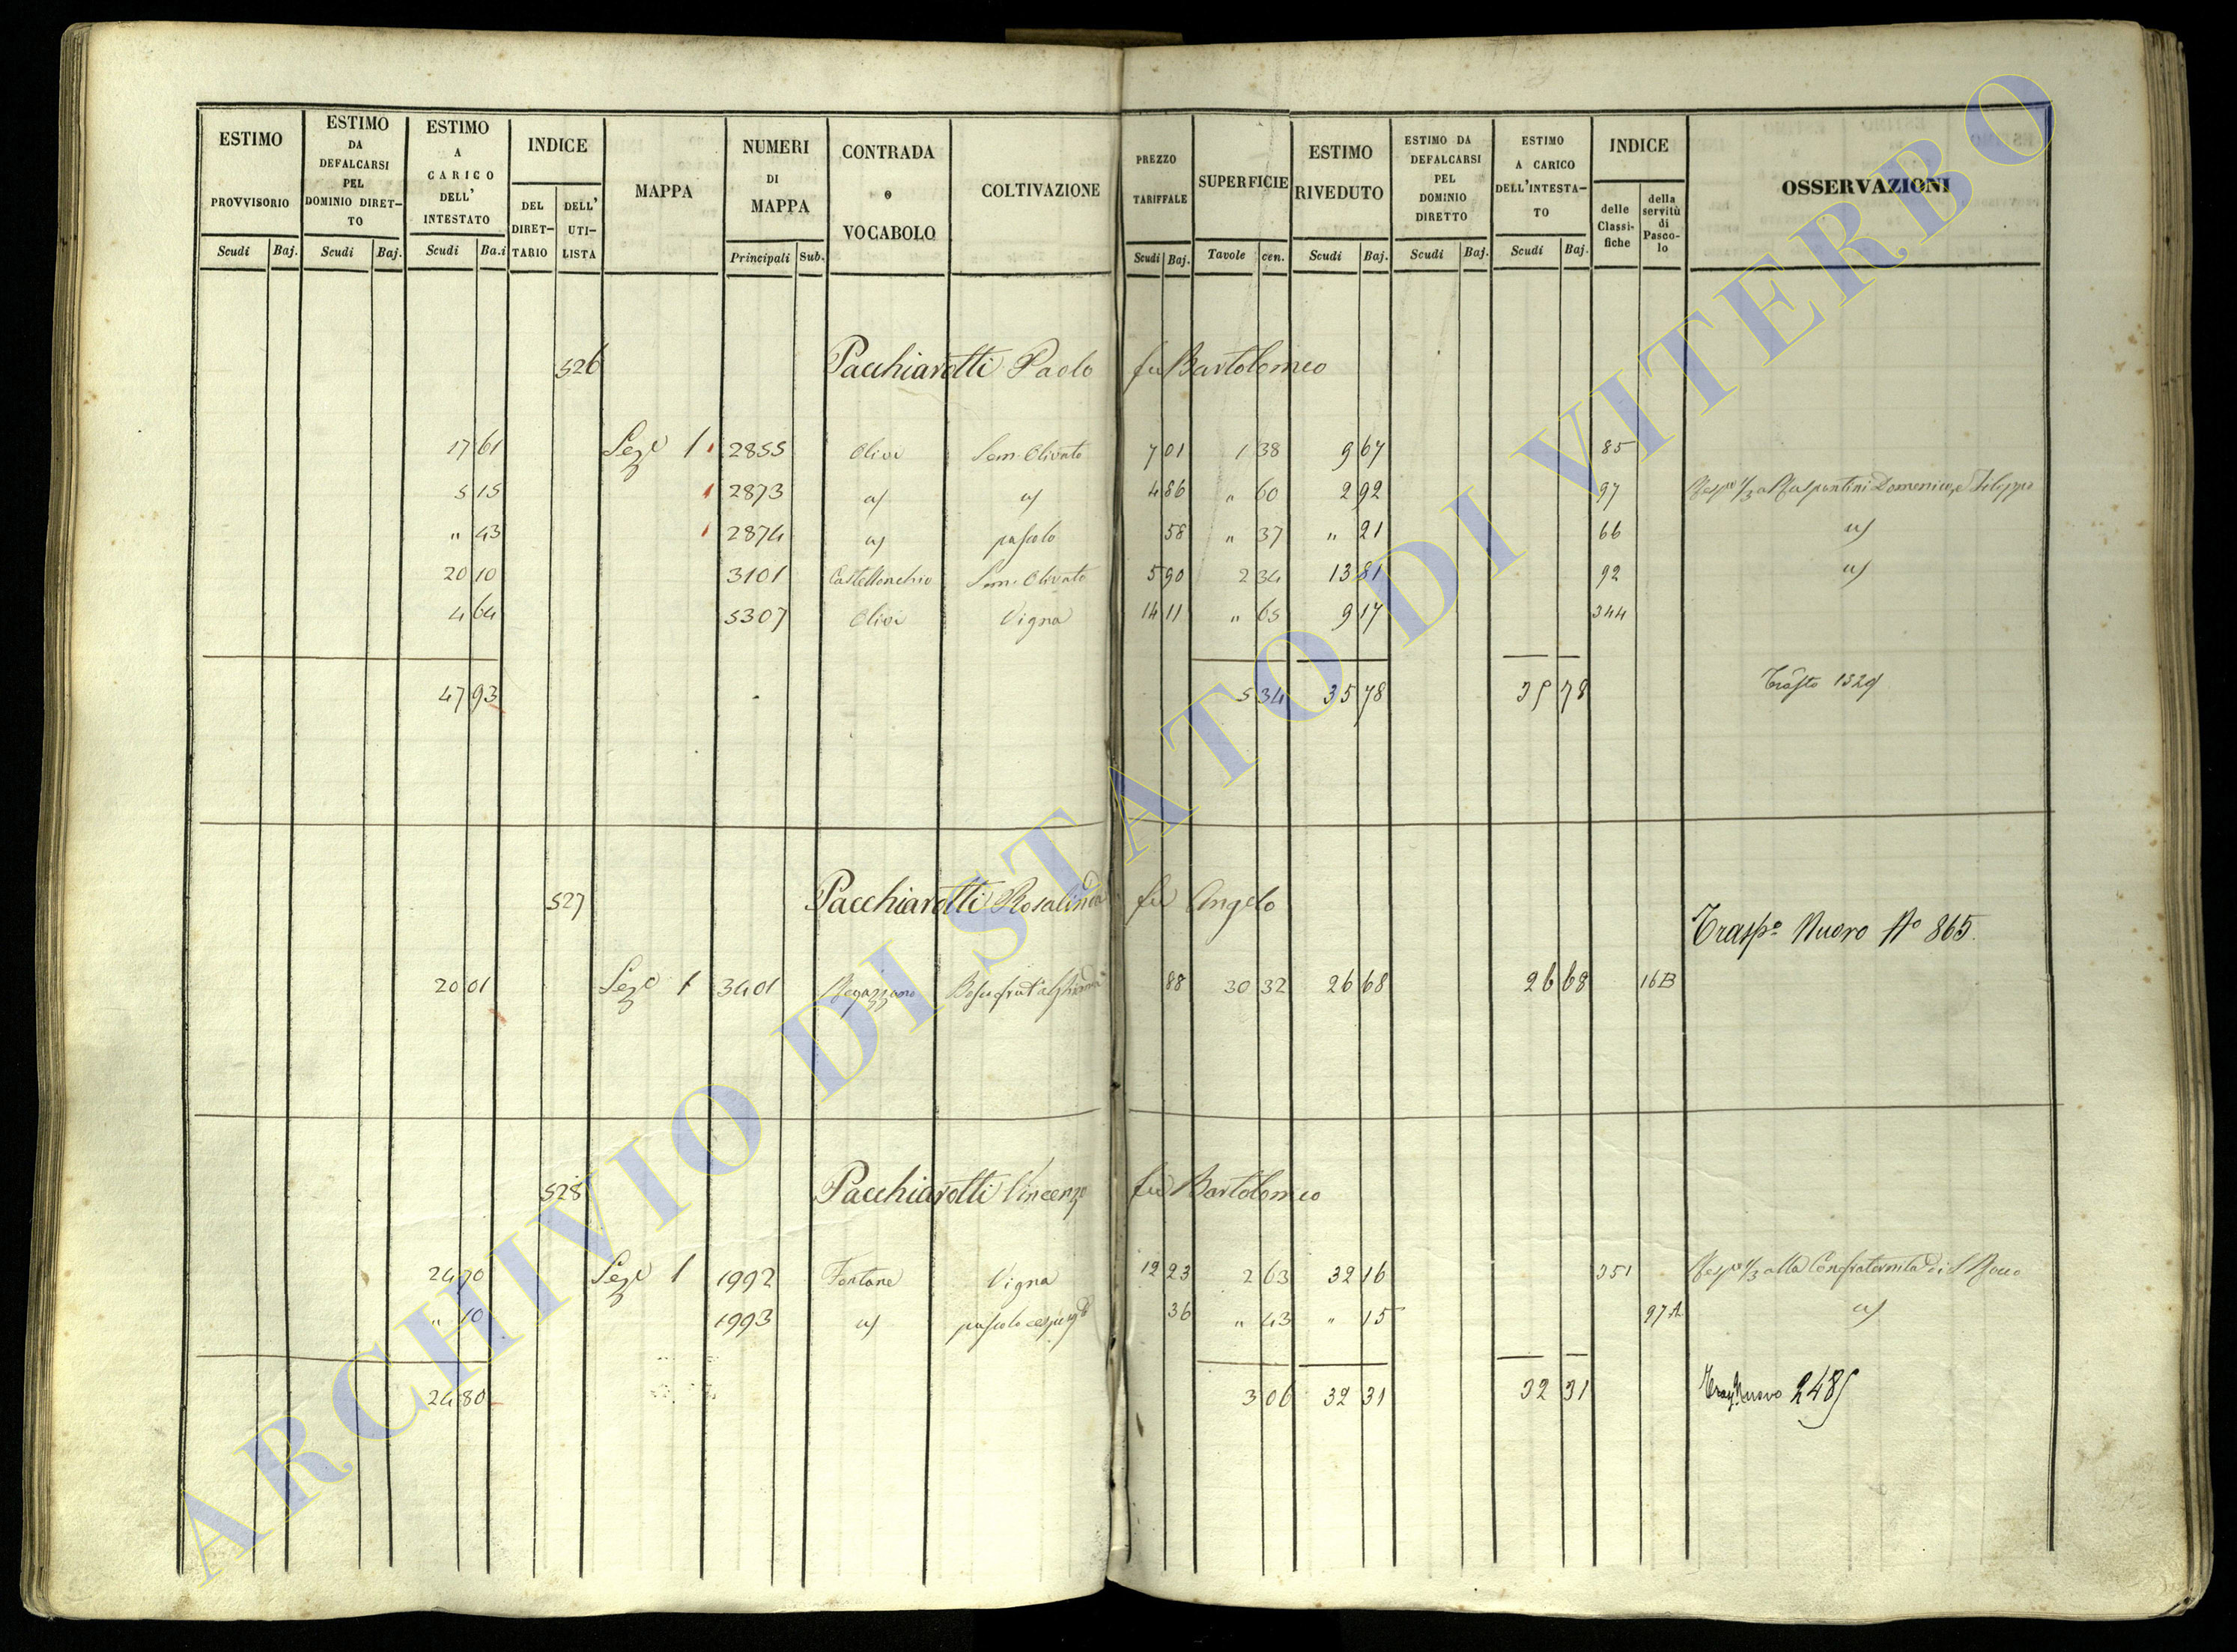 ESTIMO PROVVISORIO Scudi Baj.
ESTIMO DA DEFALCARSI PEL DOMINIO DIRET-TO Scudi Baj.
ESTIMO A CARICO DELL' INTESTATO Scudi Ba.i
INDICE DEL DIRET-TARIO DELL' UTI-LISTA
MAPPA
NUMERI DI MAPPA Principali Sub.
CONTRADA o VOCABOLO
COLTIVAZIONE
PREZZO TARIFFALE Scudi Baj.
SUPERFICIE Tavole cen.
ESTIMO RIVEDUTO Scudi Baj.
ESTIMO DA DEFALCARSI PEL DOMINIO DIRETTO Scudi Baj.
ESTIMO A CARICO DELL'INTESTA-TO Scudi Baj.
INDICE delle Classi-fiche della servitù di Pasco-lo
OSSERVAZIONI
526 Pacchiarotti Paolo fu Bartolomeo
17 61 Seze 1 2855 Olivi Sem. Olivato 7 01 1 38 9 67 85
5 15 2873 a/ a/ 4 86 " 60 2 92 97 Resp. 1/3 a Raspantini Domenico, e Filippo
" 43 2874 a/ pascolo 58 " 37 " 21 66 a/
20 10 3101 Castellonchio Sem. Olivato 5 90 2 34 13 81 92 a/
4 64 5307 Olivi Vigna 14 11 " 65 9 17 344
47 93 5 34 35 78 35 78 Trasto 1529
527 Pacchiarotti Rosalinda fu Angelo
Trasp.o Nuovo No 865.
20 01 Seze 1 3401 88 30 32 26 68 26 68 16 B
528 Pacchiarotti Vincenzo fu Bartolomeo
24 70 Seze 1 1992 Fontane Vigna 12 23 2 63 32 16 351 Resp. 1/3 alla Confraternita di S Rocco
" 10 1993 a/ pascolo cesp. 36 " 43 " 15 97 A a/
24 80 3 06 32 31 32 31 Nuovo 2485
ARCHIVIO DI STATO DI VITERBO